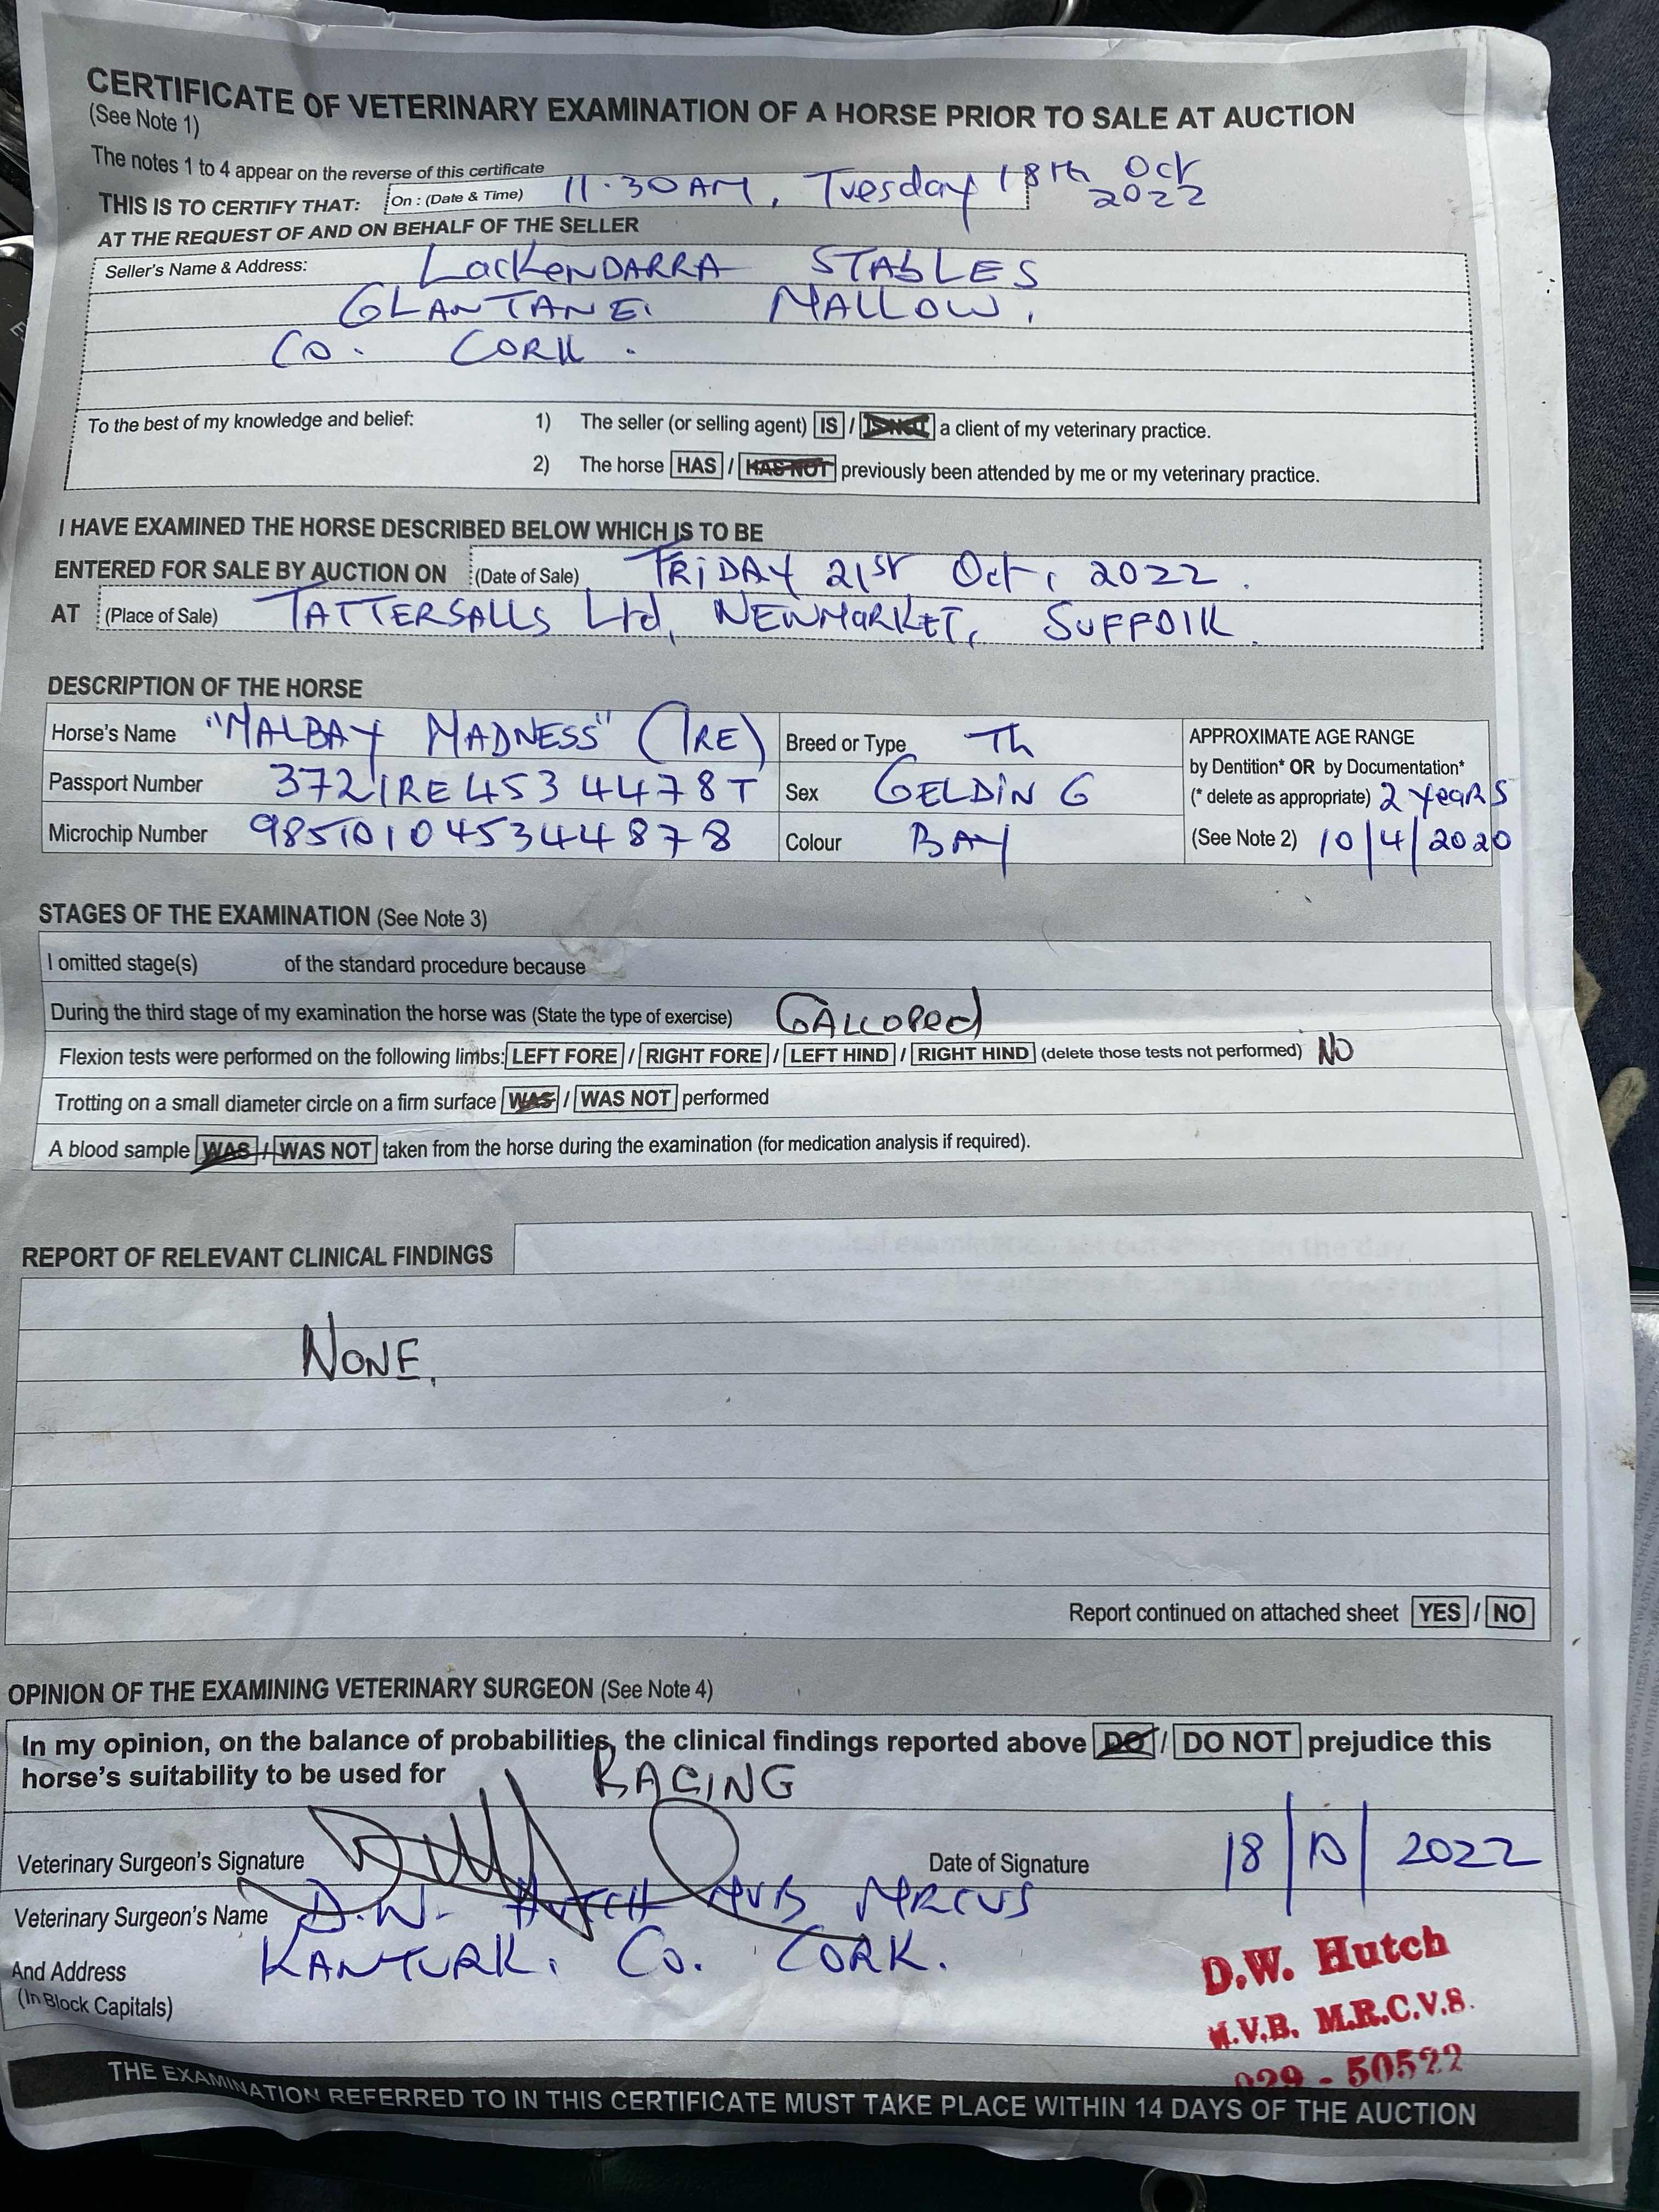 CERTIFICATE OF VETERINARY EXAMINATION OF A HORSE PRIOR TO SALE AT AUCTION
(See Note 1)
The notes 1 to 4 appear on the reverse of this certificate
THIS IS TO CERTIFY THAT: On : (Date & Time) 11.30AM, Tuesday 18th Oct 2022
AT THE REQUEST OF AND ON BEHALF OF THE SELLER
Seller's Name & Address: LACKENDARRA STABLES
GLANTANE. MALLOW,
CO. CORK.
To the best of my knowledge and belief: 1) The seller (or selling agent) IS / IS NOT a client of my veterinary practice.
2) The horse HAS / HAS NOT previously been attended by me or my veterinary practice.
I HAVE EXAMINED THE HORSE DESCRIBED BELOW WHICH IS TO BE
ENTERED FOR SALE BY AUCTION ON (Date of Sale) FRIDAY 21st Oct, 2022.
AT (Place of Sale) TATTERSALLS Ltd, NEWMARKET, SUFFOLK.
DESCRIPTION OF THE HORSE
Horse's Name "MALBAY MADNESS" (IRE) Breed or Type Th APPROXIMATE AGE RANGE
by Dentition* OR by Documentation*
Passport Number 372IRE4534478T Sex GELDING (* delete as appropriate) 2 years
Microchip Number 985101045344878 Colour BAY (See Note 2) 10/4/2020
STAGES OF THE EXAMINATION (See Note 3)
I omitted stage(s) of the standard procedure because
During the third stage of my examination the horse was (State the type of exercise) GALLOPED
Flexion tests were performed on the following limbs: LEFT FORE / RIGHT FORE / LEFT HIND / RIGHT HIND (delete those tests not performed) NO
Trotting on a small diameter circle on a firm surface WAS / WAS NOT performed
A blood sample WAS / WAS NOT taken from the horse during the examination (for medication analysis if required).
REPORT OF RELEVANT CLINICAL FINDINGS
NONE.
Report continued on attached sheet YES / NO
OPINION OF THE EXAMINING VETERINARY SURGEON (See Note 4)
In my opinion, on the balance of probabilities, the clinical findings reported above DO / DO NOT prejudice this
horse's suitability to be used for RACING
Veterinary Surgeon's Signature Date of Signature 18/10/2022
Veterinary Surgeon's Name D.W. HUTCH MVB MRCVS
And Address KANTURK. CO. CORK.
(In Block Capitals)
D.W. Hutch
M.V.B. M.R.C.V.S.
029 - 50522
THE EXAMINATION REFERRED TO IN THIS CERTIFICATE MUST TAKE PLACE WITHIN 14 DAYS OF THE AUCTION